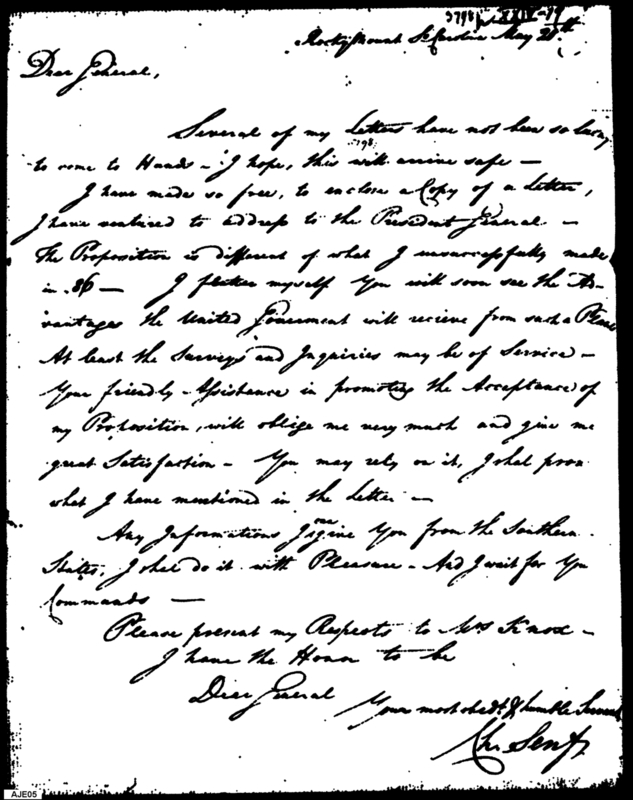 Rocky Mount So Carolina May 20th
Dear General,
Several of my Letters have not been so lucky
to come to Hands – I hope, this will arrive safe –
I have made so free, to enclose a Copy of a Letter,
I have ventured to address to the President General –
the Proposition is different of what I unsuccessfully made
in 86 – I flatter myself You will soon see the Ad-
vantages the United Government will recieve from such a Plan
At least the Surveys and Inquiries may be of Service –
Your friendly Assistance in promoting the Acceptance of
my Proposition, will oblige me very much and give me
great Satisfaction – You may rely on it, I shal prove
what I have mentioned in the Letter –
Any Informations I can give You from the Southern
States, I shall do it with Pleasure – And I wait for You
Commands –
Please present my Respects to Mrs Knox –
I have the Honor to be
Dear General
Your most obedt. & humble Servant
Chr. Senf
AJE05